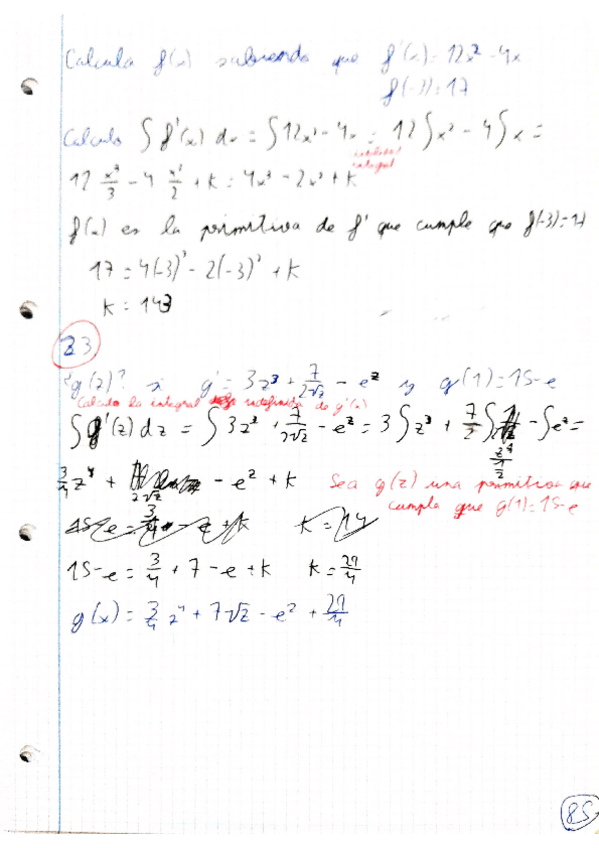 Calcula f(x) sabiendo que f'(x) = 12x² - 4x
f(-3) = 17
Calculo ∫ f'(x) dx = ∫ 12x² - 4x = 12 ∫ x² - 4 ∫ x =
integral
12 x³/3 - 4 x²/2 + k = 4x³ - 2x² + k
f(x) es la primitiva de f' que cumple que f(-3) = 17
17 = 4(-3)³ - 2(-3)² + k
k = 143
23
¿g(z)? si g' = 3z³ + 7/2√z - e^z y g(1) = 15-e
Calculo la integral indefinida de g'(z)
∫ g'(z) dz = ∫ 3z³ + 7/2√z - e^z = 3 ∫ z³ + 7/2 ∫ - ∫ e^z =
3/4 z⁴ + - e^z + k Sea g(z) una primitiva que
cumpla que g(1) = 15-e
15-e = 3/4 - e + k k = 14
15-e = 3/4 + 7 - e + k k = 29/4
g(x) = 3/4 z⁴ + 7√z - e^z + 29/4
85